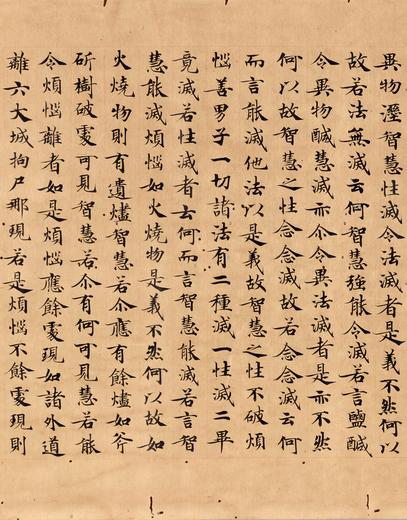 異物溼智慧性滅令法滅者是義不然何以
故若法無滅云何智慧強能令滅若言鹽醎
令異物醎慧滅亦尒令異法滅者是亦不然
何以故智慧之性念念滅故若念念滅云何
而言能滅他法以是義故智慧之性不破煩
惱善男子一切諸法有二種滅一性滅二畢
竟滅若性滅者云何而言智慧能滅若言智
慧能滅煩惱如火燒物是義不然何以故如
火燒物則有遺燼智慧若尒應有餘燼如斧
斫樹破處可見智慧若尒有何可見慧若能
令煩惱離者如是煩惱應餘處現如諸外道
離六大城拘尸那現若是煩惱不餘處現則